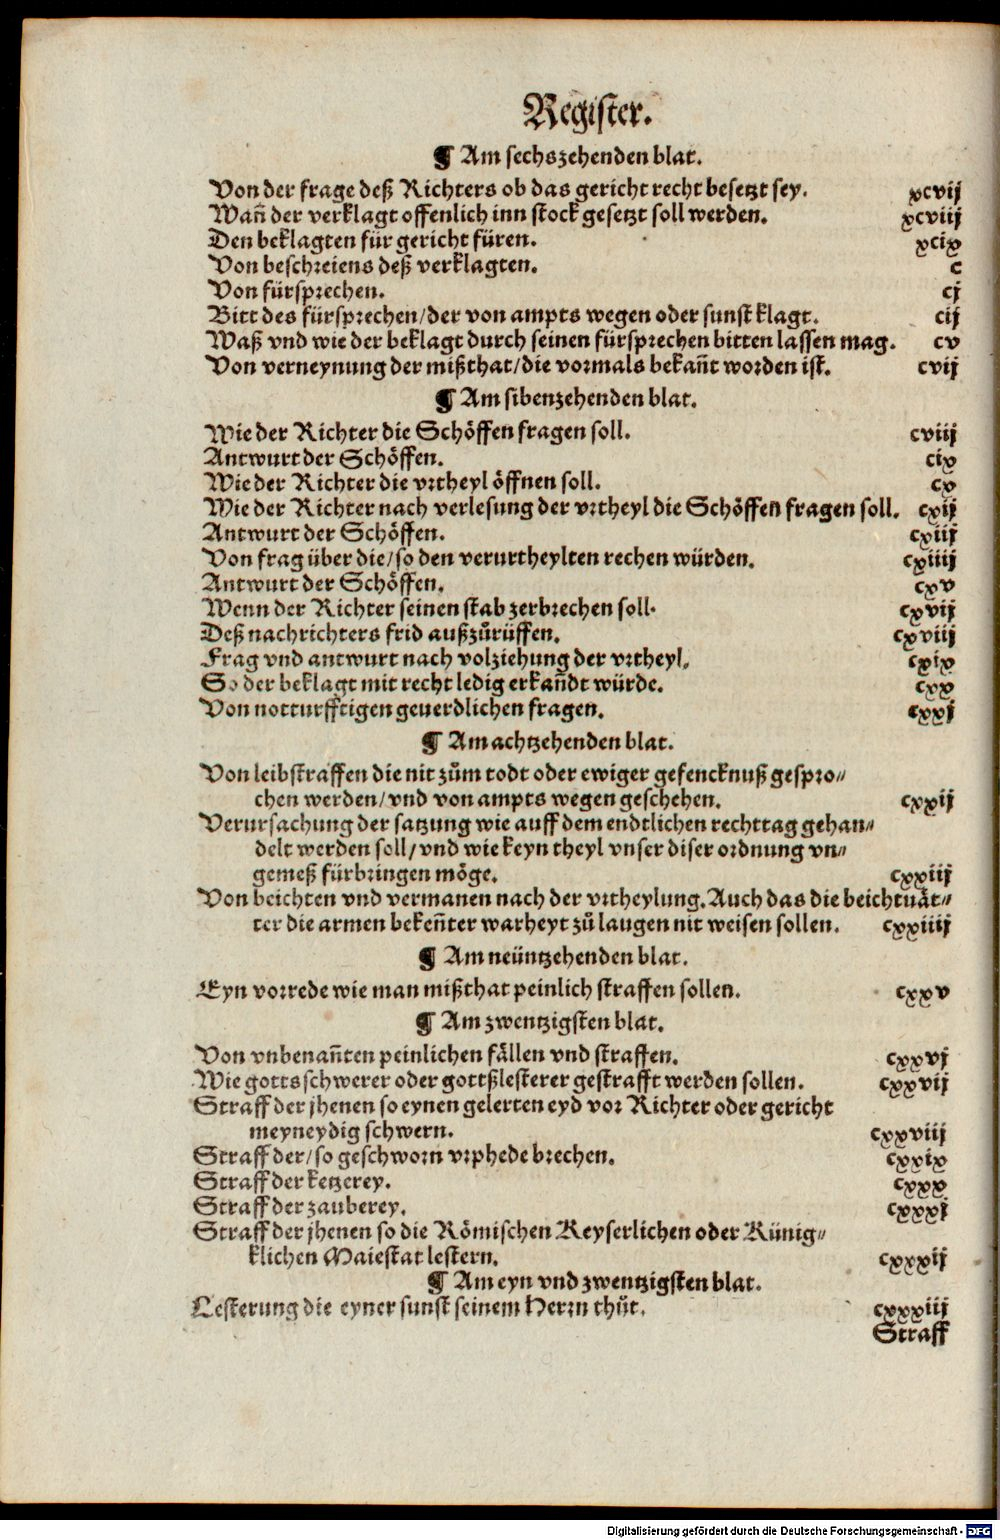 Register.
¶ Am sechszehenden blat.
Von der frage deß Richters ob das gericht recht besetzt sey. xcvij
Wañ der verklagt offenlich inn stock gesetzt soll werden. xcviij
Den beklagten für gericht füren. xcix
Von beschreiens deß verklagten. c
Von fürsprechen. cj
Bitt des fürsprechen/der von ampts wegen oder sunst klagt. cij
Waß vnd wie der beklagt durch seinen fürsprechen bitten lassen mag. cv
Von verneynung der mißthat/die vormals bekañt worden ist. cvij
¶ Am sibenzehenden blat.
Wie der Richter die Schöffen fragen soll. cviij
Antwurt der Schöffen. cix
Wie der Richter die vrtheyl öffnen soll. cx
Wie der Richter nach verlesung der vrtheyl die Schöffen fragen soll. cxij
Antwurt der Schöffen. cxiij
Von frag über die/so den verurtheylten rechen würden. cxiiij
Antwurt der Schöffen. cxv
Wenn der Richter seinen stab zerbrechen soll. cxvij
Deß nachrichters frid außzůrüffen. cxviij
Frag vnd antwurt nach volziehung der vrtheyl. cxix
So der beklagt mit recht ledig erkañdt würde. cxx
Von notturfftigen geuerdlichen fragen. cxxj
¶ Am achtzehenden blat.
Von leibstraffen die nit zům todt oder ewiger gefencknuß gespro⸗
chen werden/vnd von ampts wegen geschehen. cxxij
Verursachung der satzung wie auff dem endtlichen rechttag gehan⸗
delt werden soll/vnd wie keyn theyl vnser diser ordnung vn⸗
gemeß fürbringen möge. cxxiij
Von beichten vnd vermanen nach der vrtheylung. Auch das die beichtuät⸗
ter die armen bekeñter warheyt zů laugen nit weisen sollen. cxxiiij
¶ Am neüntzehenden blat.
Eyn vorrede wie man mißthat peinlich straffen sollen. cxxv
¶ Am zwentzigsten blat.
Von vnbenañten peinlichen fällen vnd straffen. cxxvj
Wie gottsschwerer oder gottßlesterer gestrafft werden sollen. cxxvij
Straff der jhenen so eynen gelerten eyd vor Richter oder gericht
meyneydig schwern. cxxviij
Straff der/so geschworn vrphede brechen. cxxix
Straff der ketzerey. cxxx
Straff der zauberey. cxxxj
Straff der jhenen so die Römischen Keyserlichen oder Künig⸗
klichen Maiestat lestern. cxxxij
¶ Am eyn vnd zwentzigsten blat.
Lesterung die eyner sunst seinem Herrn thůt. cxxxiij
Straff
Digitalisierung gefördert durch die Deutsche Forschungsgemeinschaft - DFG